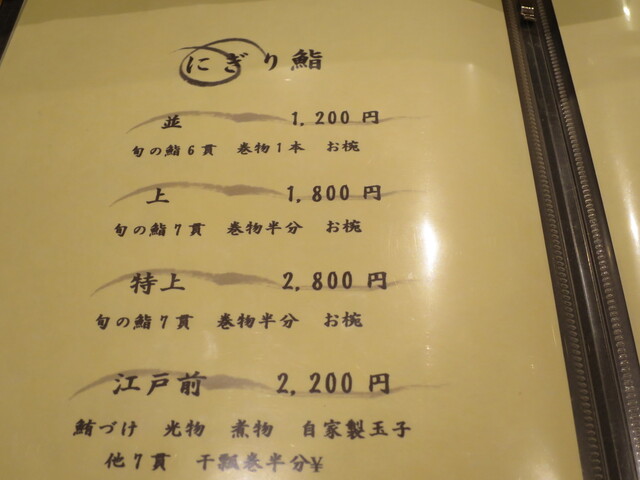 にぎり鮨
並 1,200円
旬の鮨6貫 巻物1本 お椀
上 1,800円
旬の鮨7貫 巻物半分 お椀
特上 2,800円
旬の鮨7貫 巻物半分 お椀
江戸前 2,200円
鮪づけ 光物 煮物 自家製玉子
他7貫 干瓢巻半分¥